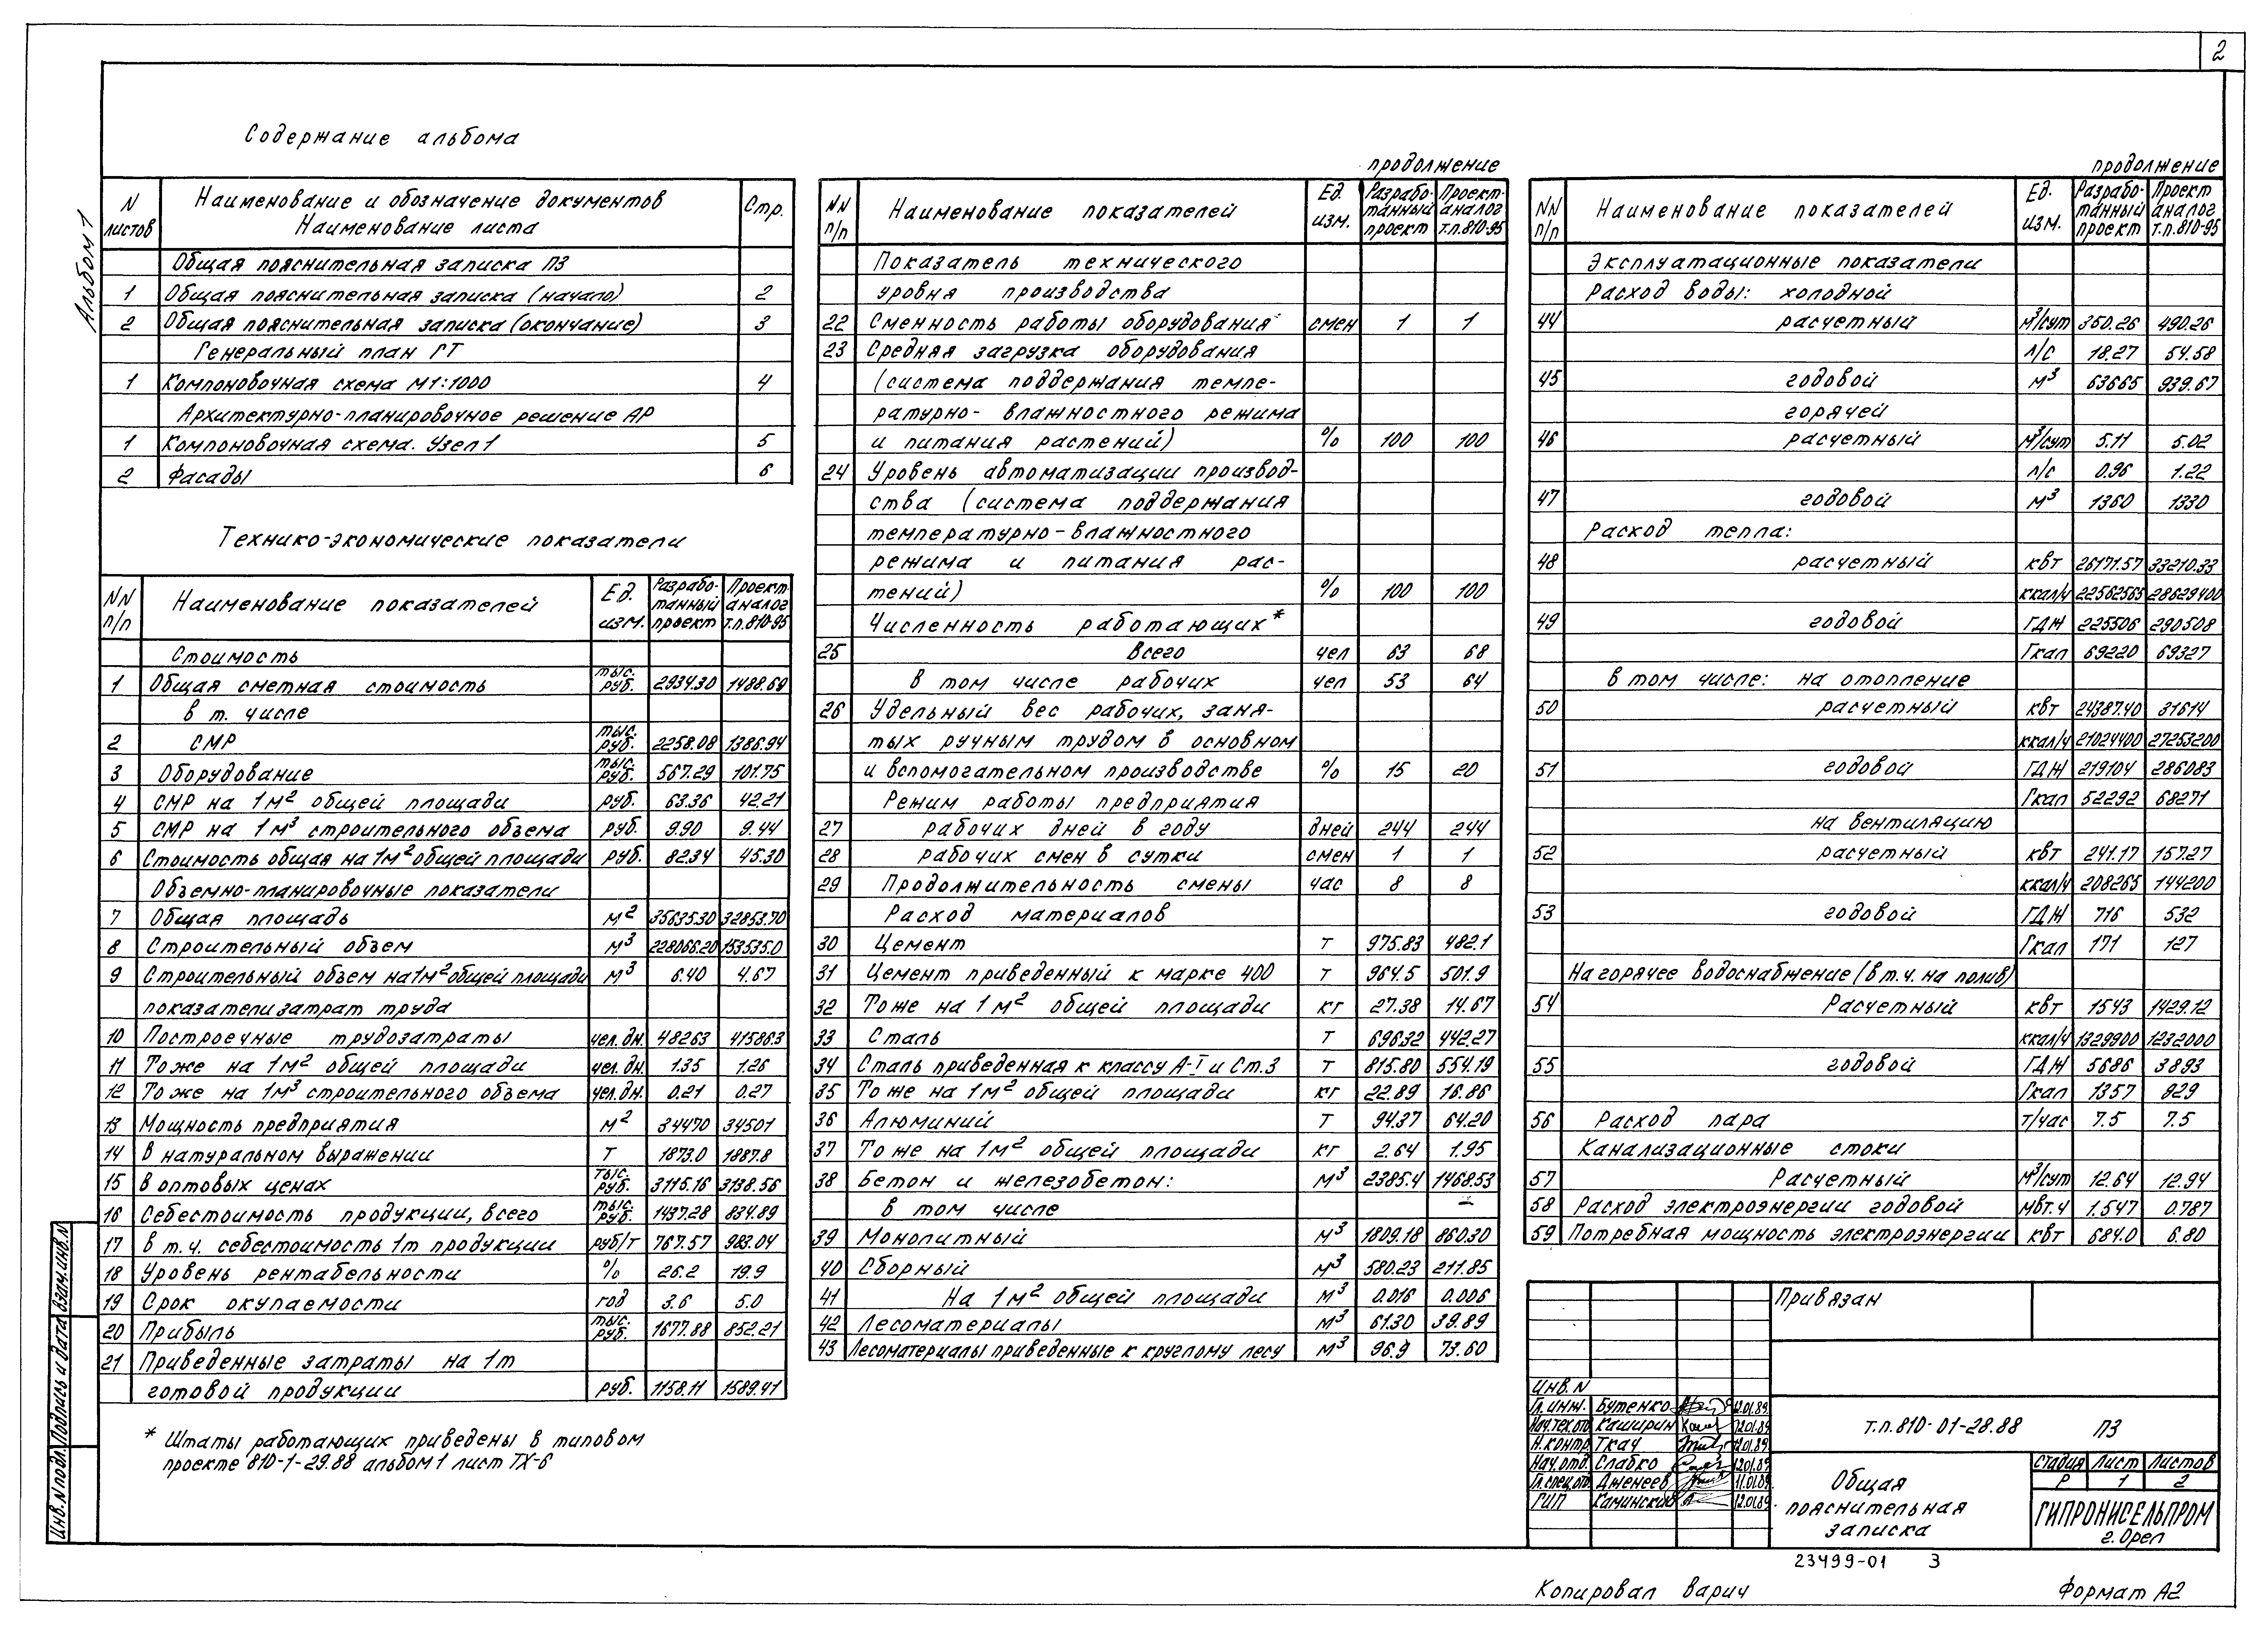 2
Альбом 1
Содержание альбома
N листов Наименование и обозначение документов Наименование листа Стр.
Общая пояснительная записка ПЗ
1 Общая пояснительная записка (начало) 2
2 Общая пояснительная записка (окончание) 3
Генеральный план ГТ
1 Компоновочная схема М1:1000 4
Архитектурно-планировочное решение АР
1 Компоновочная схема. Узел 1 5
2 Фасады 6
Технико-экономические показатели
NN п/п Наименование показателей Ед. изм. Разрабо-танный проект Проект-аналог т.п.810-95
Стоимость
1 Общая сметная стоимость тыс. руб. 2934.30 1488.69
в т. числе
2 СМР тыс. руб. 2258.08 1386.94
3 Оборудование тыс. руб. 567.29 101.75
4 СМР на 1м² общей площади руб. 63.36 42.21
5 СМР на 1м³ строительного объема руб. 9.90 9.44
6 Стоимость общая на 1м² общей площади руб. 82.34 45.30
Объемно-планировочные показатели
7 Общая площадь м² 35635.30 32853.70
8 Строительный объем м³ 228066.20 153535.0
9 Строительный объем на 1м² общей площади м³ 6.40 4.67
показатели затрат труда
10 Построечные трудозатраты чел.дн. 48263 41586.3
11 Тоже на 1м² общей площади чел.дн. 1.35 1.26
12 Тоже на 1м³ строительного объема чел.дн. 0.21 0.27
13 Мощность предприятия м² 34470 34501
14 в натуральном выражении т 1873.0 1887.8
15 в оптовых ценах тыс. руб. 3115.16 3138.56
16 Себестоимость продукции, всего тыс. руб. 1437.28 834.89
17 в т.ч. себестоимость 1т продукции руб/т 767.57 983.04
18 Уровень рентабельности % 26.2 19.9
19 Срок окупаемости год 3.6 5.0
20 Прибыль тыс. руб. 1677.88 852.21
21 Приведенные затраты на 1т
готовой продукции руб. 1158.11 1589.41
* Штаты работающих приведены в типовом
проекте 810-1-29.88 альбом 1 лист ТХ-6
продолжение
NN п/п Наименование показателей Ед. изм. Разрабо-танный проект Проект-аналог т.п.810-95
Показатель технического
уровня производства
22 Сменность работы оборудования смен 1 1
23 Средняя загрузка оборудования
(система поддержания темпе-
ратурно-влажностного режима
и питания растений) % 100 100
24 Уровень автоматизации производ-
ства (система поддержания
температурно-влажностного
режима и питания рас-
тений) % 100 100
Численность работающих*
25 Всего чел 63 68
в том числе рабочих чел 53 64
26 Удельный вес рабочих, заня-
тых ручным трудом в основном
и вспомогательном производстве % 15 20
Режим работы предприятия
27 рабочих дней в году дней 244 244
28 рабочих смен в сутки смен 1 1
29 Продолжительность смены час 8 8
Расход материалов
30 Цемент т 975.83 482.1
31 Цемент приведенный к марке 400 т 964.5 501.9
32 Тоже на 1м² общей площади кг 27.38 14.67
33 Сталь т 696.32 442.27
34 Сталь приведенная к классу А-I и Ст.3 т 815.80 554.19
35 Тоже на 1м² общей площади кг 22.89 16.86
36 Алюминий т 94.37 64.20
37 Тоже на 1м² общей площади кг 2.64 1.95
38 Бетон и железобетон: м³ 2385.4 1468.53
в том числе
39 Монолитный м³ 1809.18 860.30
40 Сборный м³ 580.23 211.85
41 На 1м² общей площади м³ 0.016 0.006
42 Лесоматериалы м³ 61.30 39.89
43 Лесоматериалы приведенные к круглому лесу м³ 96.9 73.60
продолжение
NN п/п Наименование показателей Ед. изм. Разрабо-танный проект Проект аналог т.п.810-95
Эксплуатационные показатели
Расход воды: холодной
44 расчетный м³/сут 350.26 490.26
л/с 18.27 54.58
45 годовой м³ 63665 939.67
горячей
46 расчетный м³/сут 5.11 5.02
л/с 0.96 1.22
47 годовой м³ 1360 1330
Расход тепла:
48 расчетный квт 26171.57 33210.33
ккал/ч 22562565 28629400
49 годовой ГДЖ 225506 290508
Гкал 69220 69327
в том числе: на отопление
50 расчетный квт 24387.40 31614
ккал/ч 21024400 27253200
51 годовой ГДЖ 219104 286083
Гкал 52292 68271
на вентиляцию
52 расчетный квт 241.17 157.27
ккал/ч 208265 144200
53 годовой ГДЖ 716 532
Гкал 171 127
На горячее водоснабжение (в т.ч. на полив)
54 Расчетный квт 1543 1429.12
ккал/ч 1329900 1232000
55 годовой ГДЖ 5686 3893
Гкал 1357 929
56 Расход пара т/час 7.5 7.5
Канализационные стоки
57 Расчетный м³/сут 12.64 12.94
58 Расход электроэнергии годовой мвт.ч 1.547 0.787
59 Потребная мощность электроэнергии квт 684.0 6.80
Привязан
Инв. N
Гл. инж. Бутенко 12.01.89
Нач.тех.отд Каширин 12.01.89
Н. контр. Ткач 12.01.89
Нач. отд. Слабко 12.01.89
Гл.спец.отд. Дженеев 11.01.89
ГИП Каминский 12.01.89
т.п.810-01-28.88 ПЗ
Общая
пояснительная
записка
Стадия Лист Листов
Р 1 2
ГИПРОНИСЕЛЬПРОМ
г. Орел
23499-01 3
Копировал Варич Формат А2
Инв.N подл. Подпись и дата Взам.инв.N